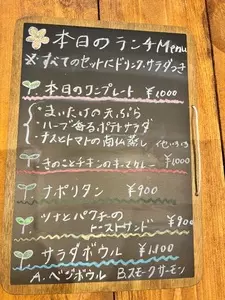 本日のランチMenu
※すべてのセットにドリンク、サラダつき
本日のワンプレート ¥1000
・まいたけの天ぷら
・ハーブ香るポテトサラダ
・ナスとトマトの南仏蒸し
きのことチキンのキーマカレー ¥1000
ナポリタン ¥900
ツナとパクチーの
トーストサンド ¥900
サラダボウル ¥1,100
A.ベジボウル B.スモークサーモン